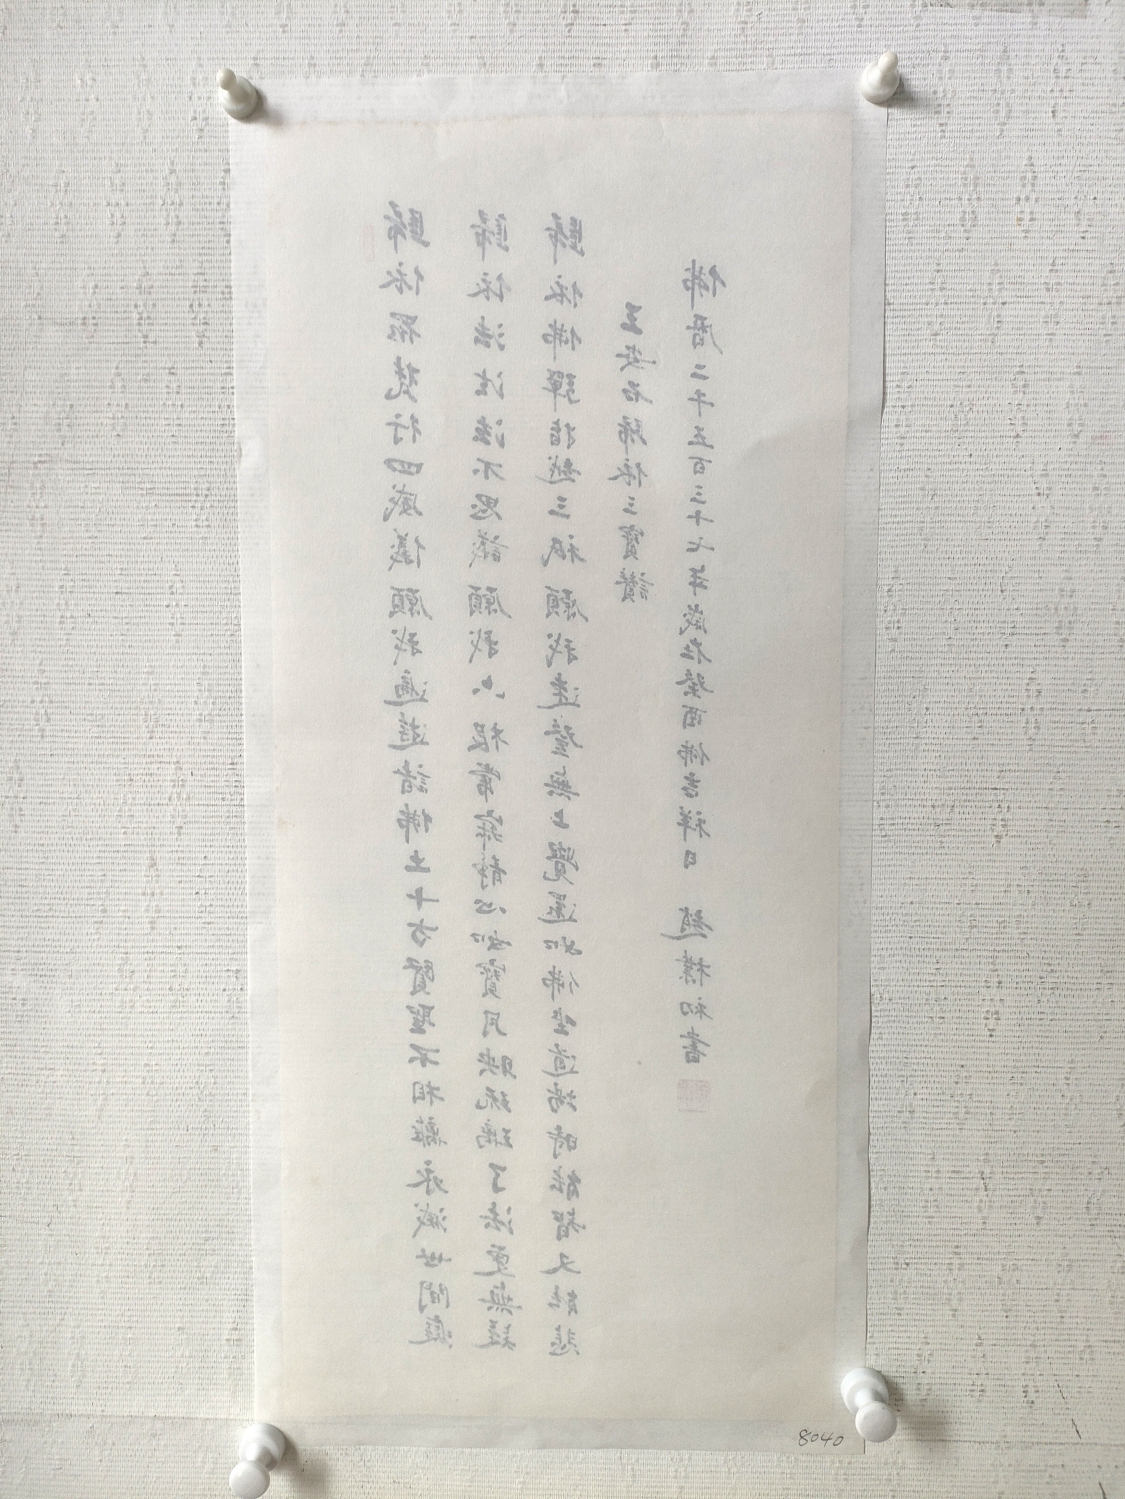 歸依眾梵行四威儀願我遍遊諸佛土十方賢聖不相離永滅世間癡
歸依法法法不思議願我六根常寂靜心如寶月映琉璃了法更無疑
歸依佛彈指越三祇願我速登無上覺還如佛坐道場時能智又能悲
王安石歸依三寶讚
佛曆二千五百三十七年歲在癸酉佛吉祥日 趙樸初書
8040